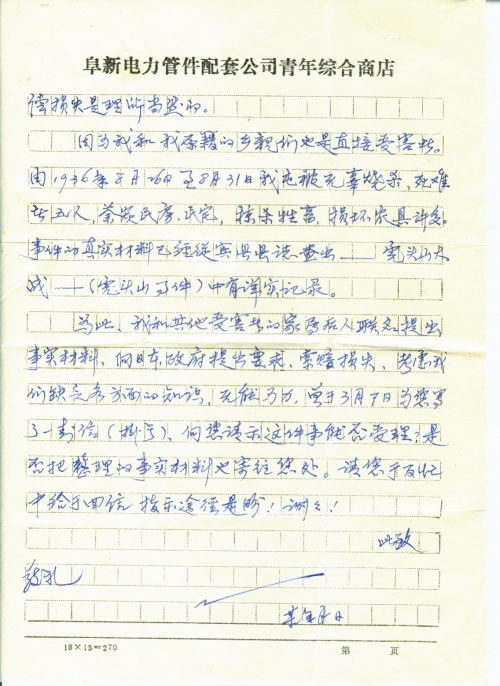 阜新电力管件配套公司青年综合商店
偿损失是理所当然的。
因为我和我原籍的乡亲们也是直接受害者。
由1936年8月26日至8月31日我地被无辜烧杀,死难
者五人,焚烧民房、 掠杀牲畜,损坏农具许多。
事件的真实材料已经从宾县县志查出——虎头山大
战——(虎头山事件)中有详实记录。
为此,我和其他受害者的家属后人联名提出
事实材料,向日本政府提出要求,索赔损失,考虑我
们缺乏各方面的知识,无能为力,曾于3月7日为您寄
了一封信(挂号)、向您请示这件事能否受理?是
否把整理的事实材料也寄往您处。请您于百忙
中给予回信 指示途径是盼!谢谢!
此致
敬礼
某年月日
18×15=270
第 页